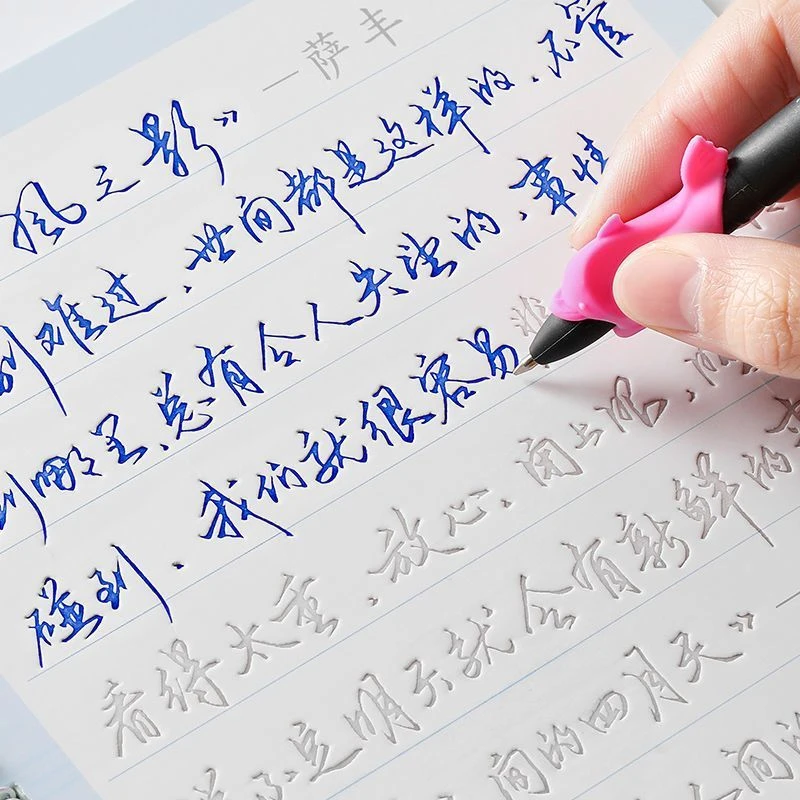 风之影》—萨丰
到难过、世间都是这样的、不管
到哪里、总有令人失望的、事情
碰到、我们就很容易难
看得太重、放心、闭上眼、
不定明天就会有新鲜的太
间的四月天》—
间的